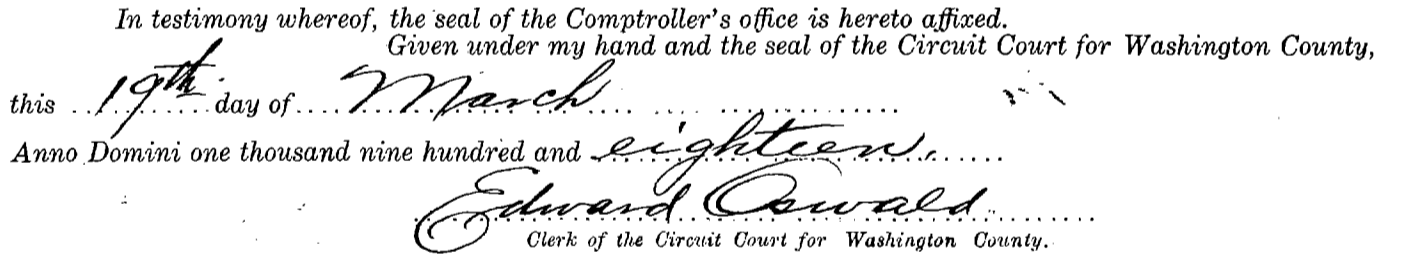 In testimony whereof, the seal of the Comptroller's office is hereto affixed.
Given under my hand and the seal of the Circuit Court for Washington County,
this 19th day of March
Anno Domini one thousand nine hundred and eighteen.
Edward Oswald
Clerk of the Circuit Court for Washington County.